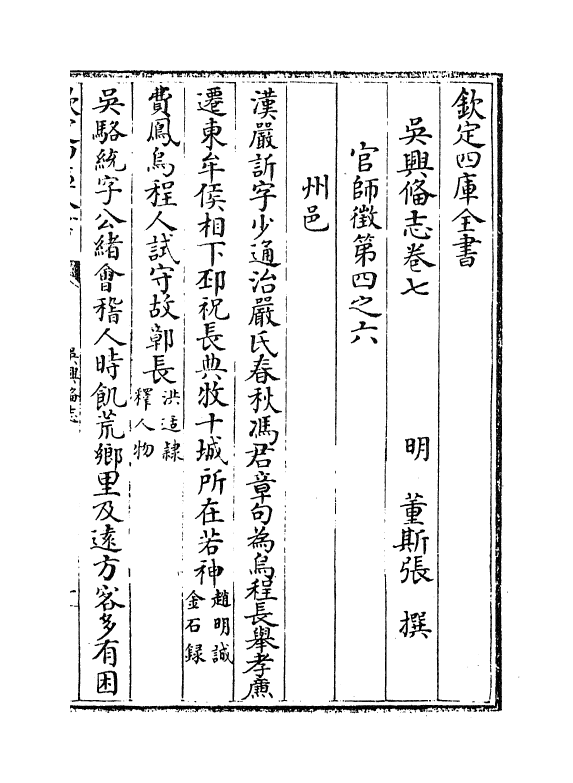 欽定四庫全書
吳興備志卷七
明　董斯張　撰
官師徵第四之六
州邑
漢嚴訢字少通治嚴氏春秋馮君章句為烏程長舉孝廉
遷東牟侯相下邳祝長典牧十城所在若神趙明誠金石録
費鳳烏程人試守故鄣長洪适隸釋人物
吳駱統字公緒會稽人時飢荒鄉里及遠方客多有困
吳興備志